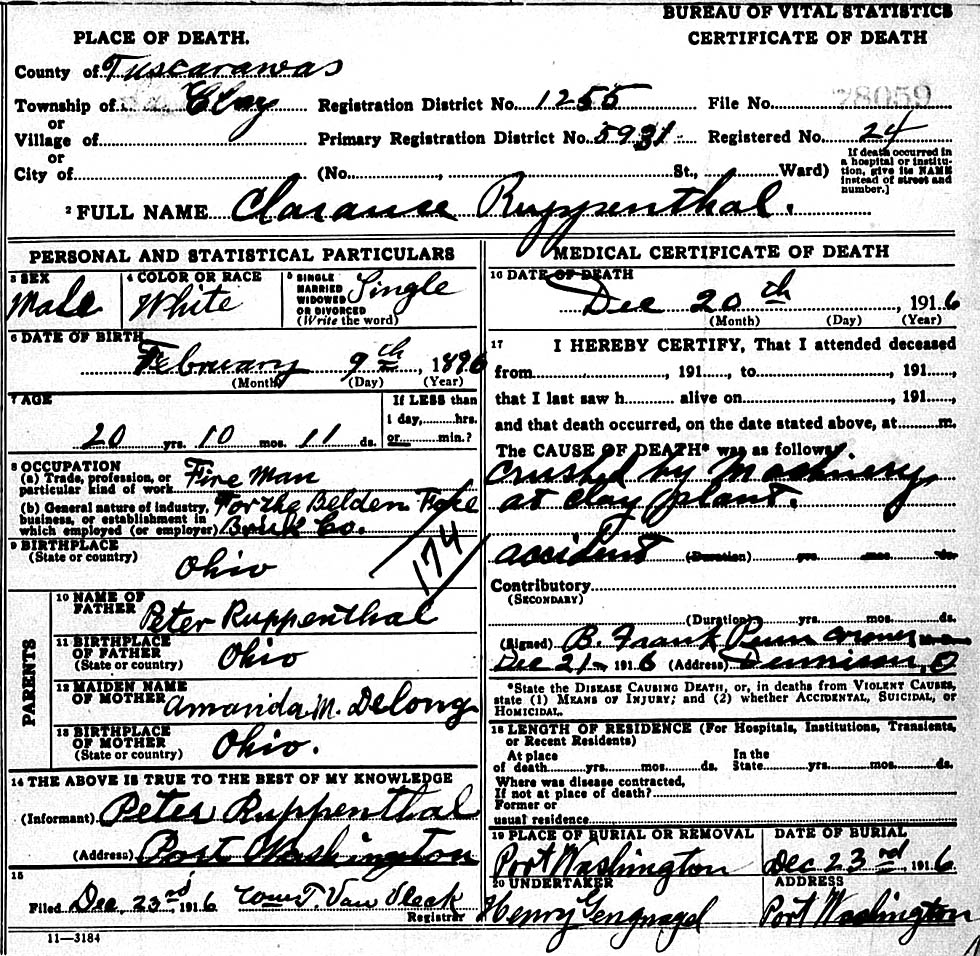 BUREAU OF VITAL STATISTICS
PLACE OF DEATH. CERTIFICATE OF DEATH
County of Tuscarawas
Township of Clay Registration District No. 1255 File No. 28059
or
Village of Primary Registration District No. 5931 Registered No. 24
or
City of (No. , St., Ward) If death occurred in a hospital or institution, give its NAME instead of street and number.]
2 FULL NAME Clarause Ruppenthal.
PERSONAL AND STATISTICAL PARTICULARS
3 SEX Male 4 COLOR OR RACE White 5 SINGLE MARRIED WIDOWED OR DIVORCED (Write the word) Single
6 DATE OF BIRTH
February 9th, 1896
(Month) (Day) (Year)
7 AGE If LESS than
1 day, hrs.
20 yrs. 10 mos. 11 ds. or min.?
8 OCCUPATION
(a) Trade, profession, or
particular kind of work Fire Man
(b) General nature of industry, For the Belden
business, or establishment in
which employed (or employer) Brick Co.
174
9 BIRTHPLACE
(State or country) Ohio
PARENTS
10 NAME OF
FATHER Peter Ruppenthal
11 BIRTHPLACE
OF FATHER
(State or country) Ohio
12 MAIDEN NAME
OF MOTHER Amanda M. DeLong
13 BIRTHPLACE
OF MOTHER
(State or country) Ohio.
14 THE ABOVE IS TRUE TO THE BEST OF MY KNOWLEDGE
(Informant) Peter Ruppenthal
(Address) Port Washington
15
Filed Dec. 23rd, 1916 Wm T. Van Vleck
Registrar
11—3184
MEDICAL CERTIFICATE OF DEATH
16 DATE OF DEATH
Dec 20th, 1916
(Month) (Day) (Year)
17 I HEREBY CERTIFY, That I attended deceased
from , 191 , to , 191 ,
that I last saw h alive on , 191 ,
and that death occurred, on the date stated above, at m.
The CAUSE OF DEATH* was as follows:
Crushed by Machinery
at Clay plant.
accident (Duration) yrs. mos. ds.
Contributory
(SECONDARY)
(Duration) yrs. mos. ds.
(Signed) B. Frank Coroner
Dec 21 1916 (Address) Dennison, O
*State the DISEASE CAUSING DEATH, or, in deaths from VIOLENT CAUSES,
state (1) MEANS OF INJURY; and (2) whether ACCIDENTAL, SUICIDAL, or
HOMICIDAL.
18 LENGTH OF RESIDENCE (For Hospitals, Institutions, Transients,
or Recent Residents)
At place In the
of death yrs. mos. ds. State yrs. mos. ds.
Where was disease contracted,
If not at place of death?
Former or
usual residence
19 PLACE OF BURIAL OR REMOVAL DATE OF BURIAL
Port Washington Dec 23rd 1916
20 UNDERTAKER ADDRESS
Henry Gengnagel Port Washington